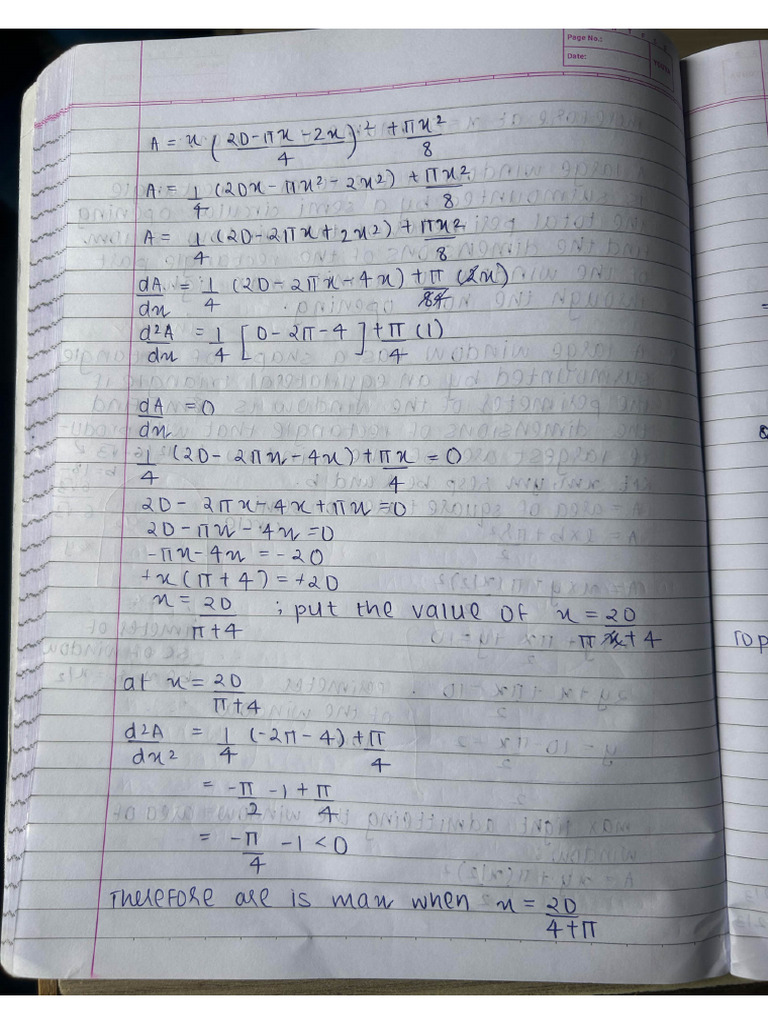 Page No.:
Date:
A = x (20-πx-2x / 4)² + πx²/8
A = 1/4 (20x - πx² - 2x²) + πx²/8
A = 1/4 (20 - 2πx + 2x²) + πx²/8
dA/dx = 1/4 (20 - 2πx - 4x) + π/84 (2x)
d²A/dx = 1/4 [0 - 2π - 4] + π/4 (1)
dA/dx = 0
1/4 (20 - 2πx - 4x) + πx/4 = 0
20 - 2πx - 4x + πx = 0
20 - πx - 4x = 0
-πx - 4x = -20
+x(π + 4) = +20
x = 20/π+4 ; put the value of x = 20/π+4
at x = 20/π+4
d²A/dx² = 1/4 (-2π - 4) + π/4
= -π/2 - 1 + π/4
= -π/4 - 1 < 0
Therefore are is max when x = 20/4+π